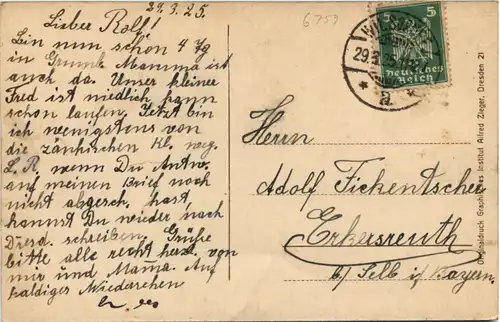 29.3.25.
Lieber Rolf!
Bin nun schon 4 Tg
in Grimma. Mamma ist
auch da. Unser kleiner
Fred ist niedlich kann
schon laufen. Jetzt bin
ich wenigstens von
die zänkischen Kl. weg.
L. R. wenn Du Antw.
auf meinen Brief noch
nicht abgesch. hast,
kannst Du wieder nach
Dresd. schreiben. Grüße
bitte alle recht herzl. von
mir und Mama. Auf
baldiges Wiedersehen
6753
29.3.25
a.
5
Deutsches
Reich
Herrn
Adolf Fickentscher
Erkersreuth
b/ Selb i/ Bayern.
Originaldruck Graphisches Institut Alfred Zieger, Dresden 21